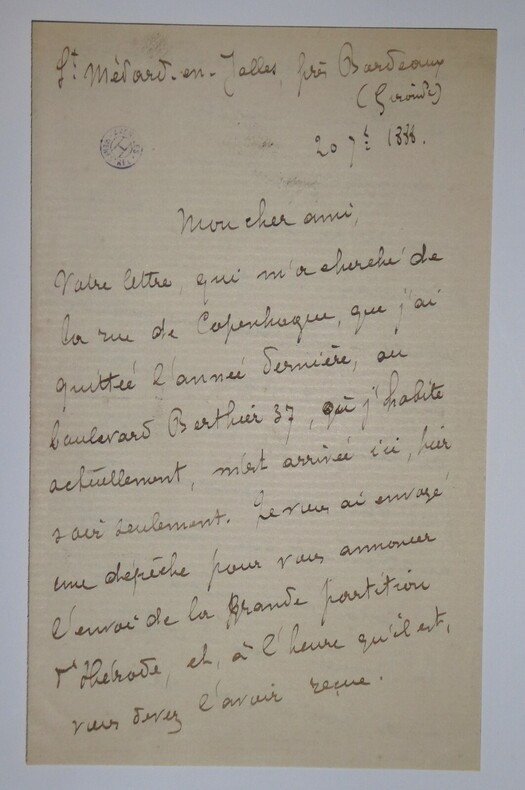 St Médard-en-Jalles, près Bordeaux
(Gironde)
20 7bre 1888.
Mon cher ami,
Votre lettre, qui m'a cherché de
la rue de Copenhague, que j'ai
quittée l'année dernière, au
boulevard Berthier 37, où j'habite
actuellement, m'est arrivée ici, hier
soir seulement. Je vous ai envoyé
une dépêche pour vous annoncer
l'envoi de la grande partition
d'Hérode, et, à l'heure qu'il est,
vous devez l'avoir reçue.